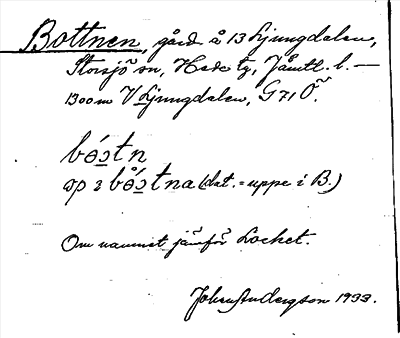 Bottnen, gård å 13 Ljungdalen,
Storsjö sn, Hede tg, Jämtl. l. —
1300 m V Ljungdalen, G 71 Ö.
bótn
op i bótna (dat. = uppe i B.)
Om namnet jämför Lochet.
Johan Andersson 1933.